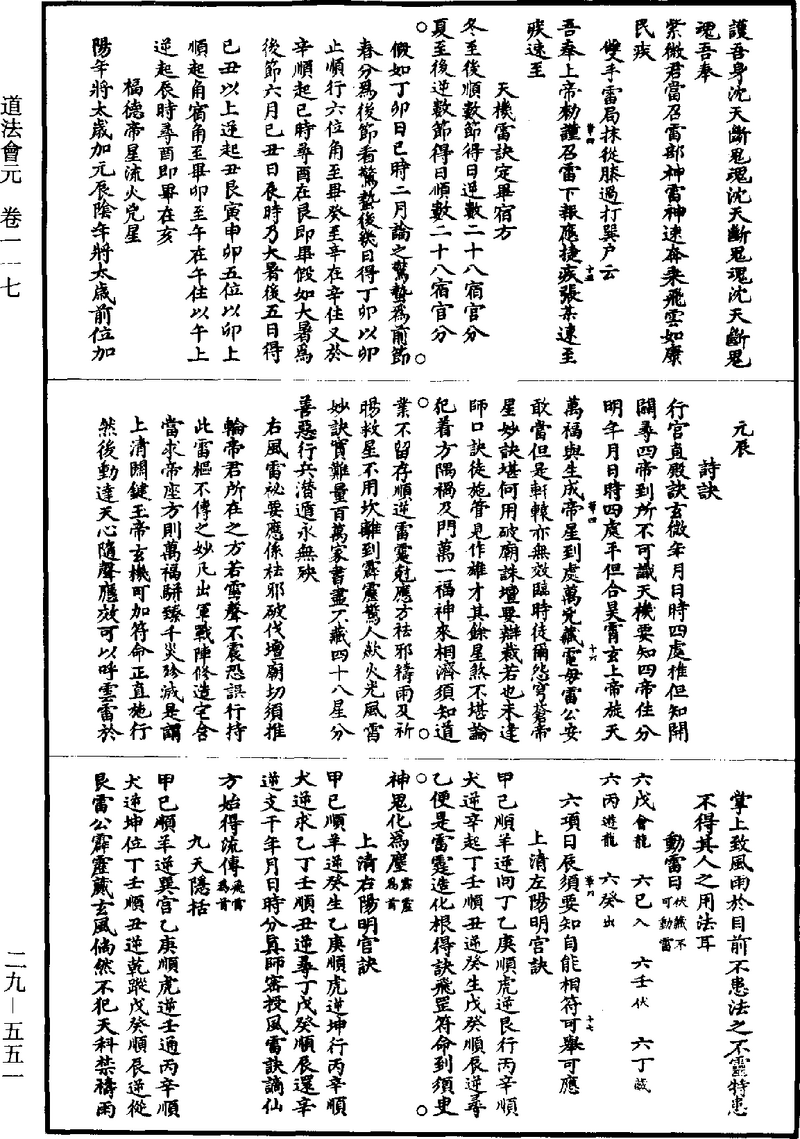 護吾身沈天斷鬼魂沈天斷鬼魂沈天斷鬼
魂吾奉
紫微君當召雷部神雷神速奔來飛雲如康
民疾
雙手雷局抹從膝過打巽户云
吾奉上帝勑謹召雷下報應捷疾張某速至
疾速至
天機雷訣定畢宿方
冬至後順數節得日逆數二十八宿官分
夏至後逆數節得日順數二十八宿官分
假如丁卯日巳時二月論之驚蟄爲前節
春分爲後節看驚蟄後幾日得丁卯以卯
止順行六位角至畢癸至辛在辛住又於
辛順起巳時尋酉在艮即畢假如大暑爲
後節六月己丑日辰時乃大暑後五日得
己丑以上逆起丑艮寅申卯五位以卯上
順起角宿角至畢卯至午在午住以午上
逆起辰時尋酉即畢在亥
福德帝星流火兇星
陽年將太歲加元辰陰年將太歲前位加
元辰
詩訣
行宮直殿訣玄微年月日時四處推但知開
闢尋四帝到所不可識天機要知四帝住分
明年月日時四處平但合昊霄玄上帝旋天
萬福與生成帝星到處萬兇藏電母雷公安
敢當但是軒轅亦無效臨時徒爾怨穹蒼帝
星妙訣堪何用破廟誅壇要辯裁若也未逢
師口訣徒施管見作雄才其餘星煞不堪論
犯着方隅禍及門萬一福神來相濟須知道
業不留存順逆雷霆尅應方祛邪禱雨及祈
暘救星不用坎離到霹靂驚人歘火光風雷
妙訣實難量百萬家書盡不藏四十八星分
善惡行兵潛遁永無殃
右風雷祕要應係祛邪破伐壇廟切須推
輪帝君所在之方若雷聲不震恐誤行持
此雷樞不傳之妙凡出軍戰陣修造宅舍
當求帝座方則萬福駢臻千災殄滅是謂
上清關鍵玉帝玄機可加符命正直施行
然後動達天心隨聲應效可以呼雲雷於
掌上致風雨於目前不患法之不靈特患
不得其人之用法耳
動雷日伏藏不可動雷
六戊會龍　六巳入　六壬伏　六丁藏
六丙遊龍　六癸出
六項日辰須要知自能相符可舉可應
上清左陽明宮訣
甲己順羊逆向丁乙庚順虎逆艮行丙辛順
犬逆辛起丁壬順丑逆癸生戊癸順辰逆尋
乙便是雷霆造化根得訣飛罡符命到須臾
神鬼化爲塵霹靂爲首
上清右陽明宮訣
甲己順羊逆癸生乙庚順虎逆坤行丙辛順
犬逆求乙丁壬順丑逆尋丁戊癸順辰還辛
逆支干年月日時分真師密授風雷訣謫仙
方始得流傳飛雷爲首
九天隱括
甲己順羊逆巽宮乙庚順虎逆壬通丙辛順
犬逆坤位丁壬順丑逆乾蹤戊癸順辰逆從
艮雷公霹靂藏玄風倘然不犯天科禁禱雨
道法會元　卷一一七
二九－五五一